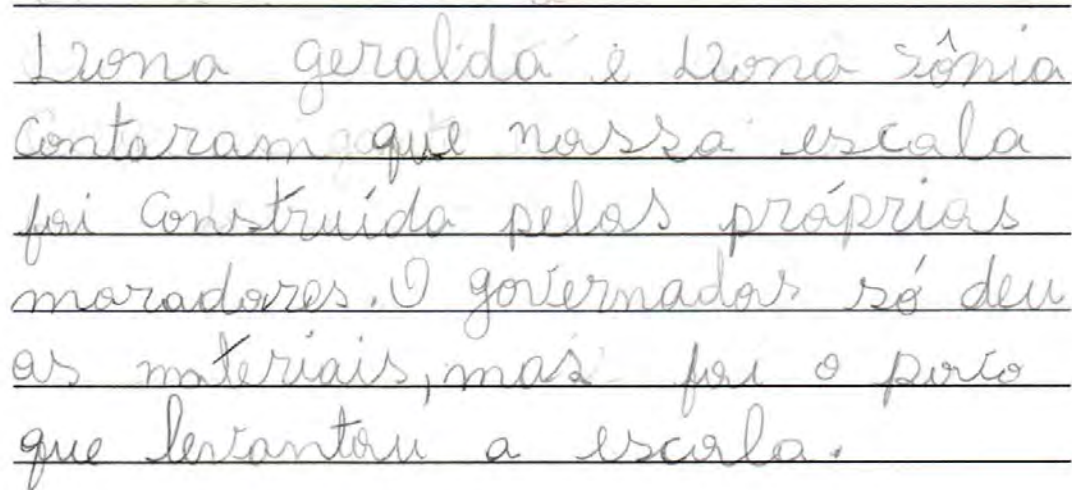 Dona geralda e Dona Sônia
contaram que nossa escola
foi construída pelos próprios
moradores. O governador só deu
os materiais, mas foi o povo
que levantou a escola.